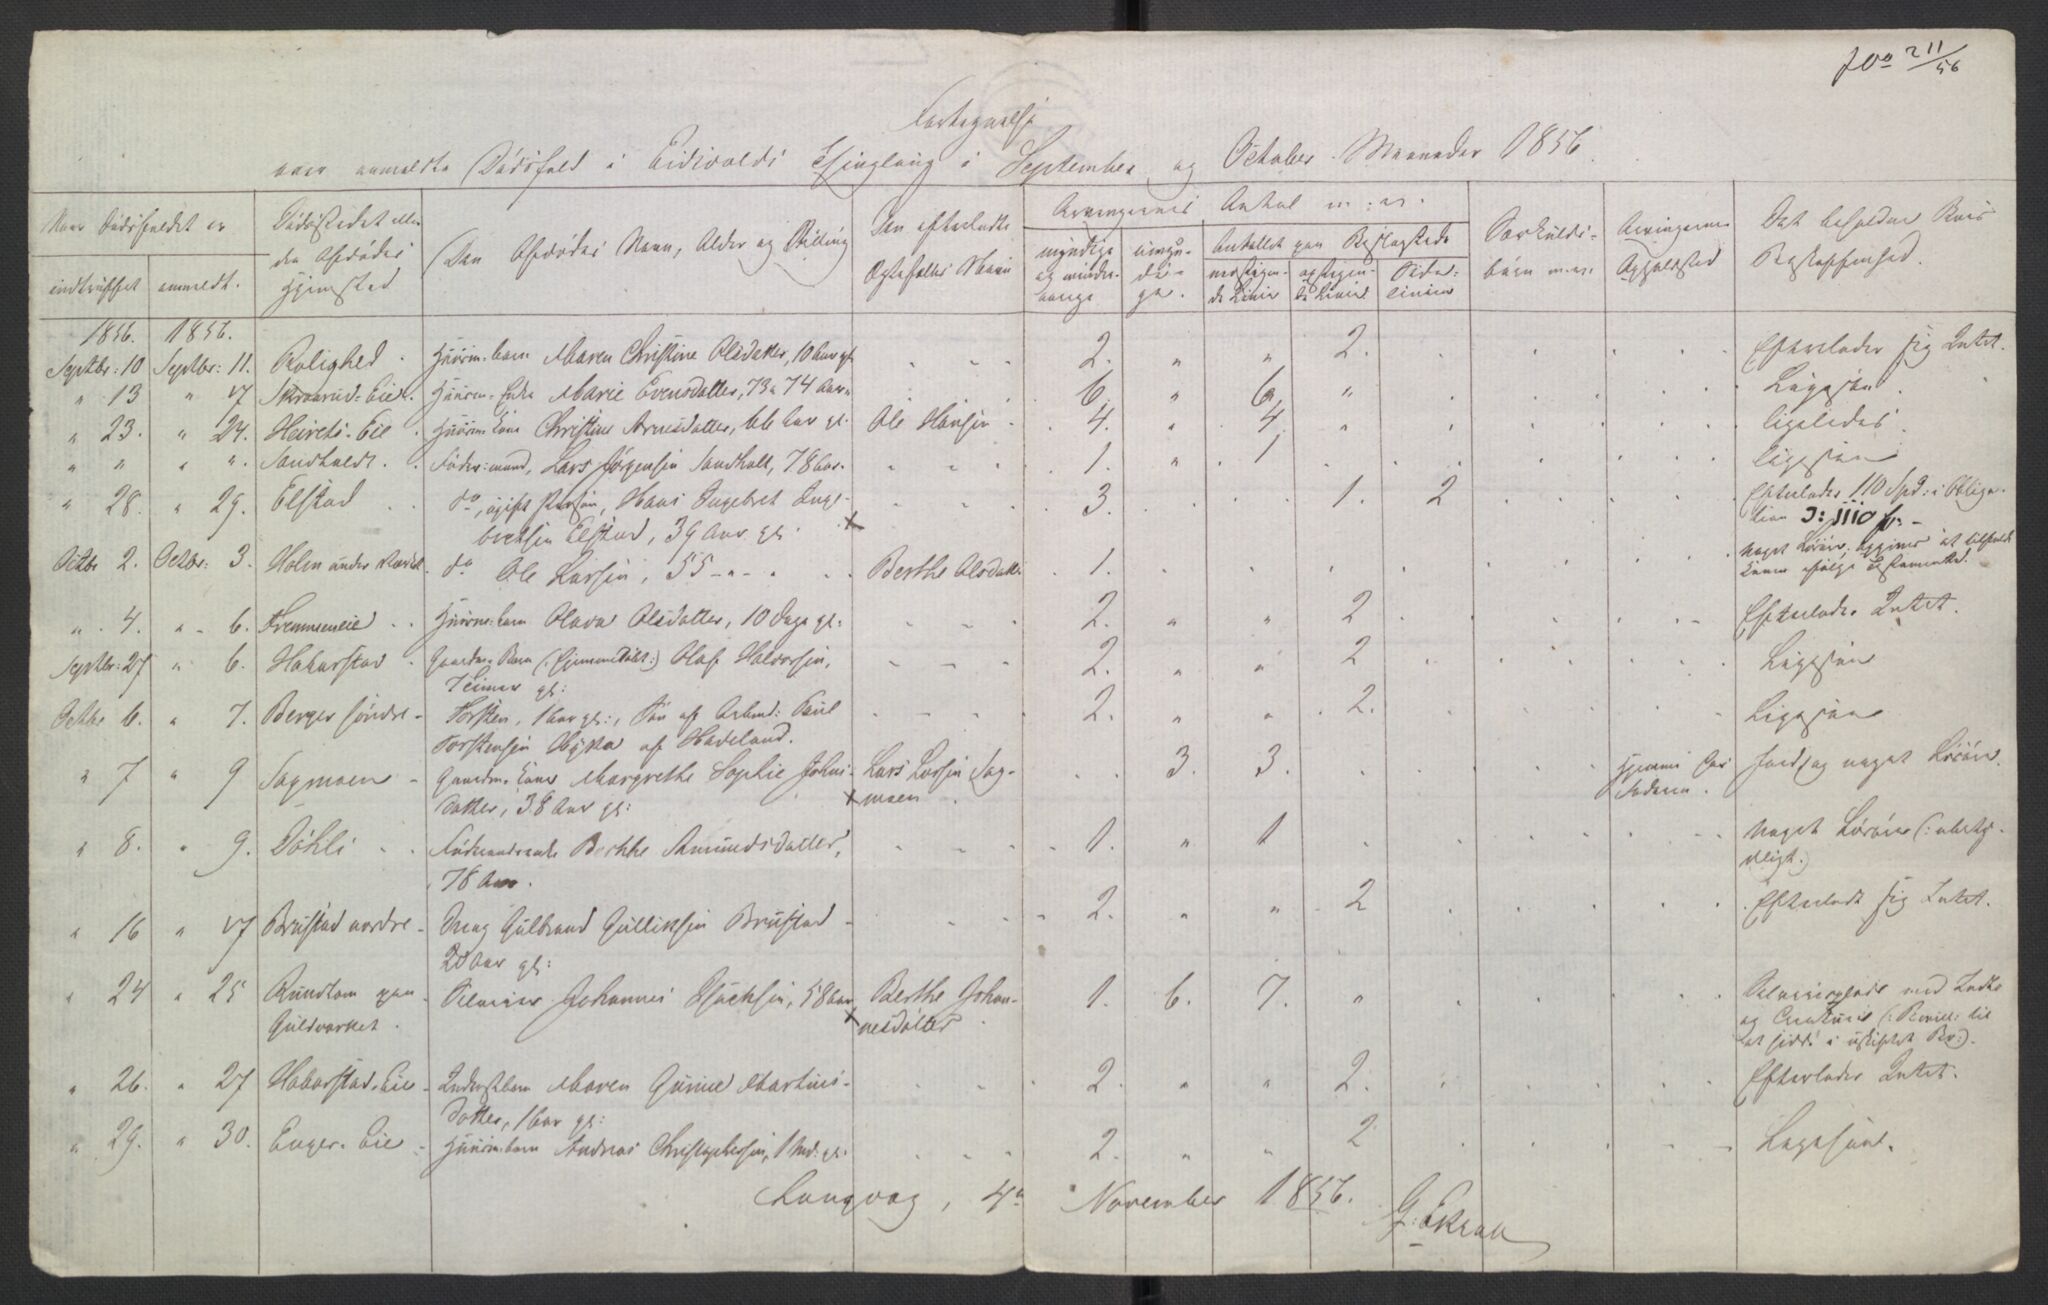 Fortegnelse
over anmeldte Dödsfald i Eidsvolds Thinglaug i September og October Maaneder 1856.
Naar Dödsfaldet er
indtruffet
anmeldt.
Dödsstedet eller
den Afdödes
Hjemsted
Den Afdödes Navn, Alder og Stilling
Den efterladte
Ægtefælles Navn
Arvingernes Antal m: v.
myndige
og mindre-
aarige
umyn-
di-
ge.
Antallet paa Beslægtede
nedstigen-
de Linie
opstigen-
de Linie
Side-
linien
Særkulds-
börn m. v.
Arvingernes
Opholdsted
Det beholdne Boes
Beskaffenhed.
1856. 1856.
Septbr: 10 Septbr: 11. Rolighed Huusm: barn Maren Christine Olsdatter, 10 Aar gl. 2. " " 2. Efterlader sig Intet.
" 13 " 17 Skraarud-Eie. Huusm: Enke Marie Evensdatter, 73 a 74 Aar 6. " 6. " Ligesaa
" 23. " 24. Eie Huusm: Kone Christine Arnesdatter, 66 Aar gl. Ole Hansen 4. " 4. " ligeledes
" " " ". Sandholdt. Föder: mand, Lars Jörgensen Sandholt, 78 Aar. 1. " 1 ligesaa
" 28. " 29. Elstad do, ugift Person, Hans Ingebret Inge-
bretsen Elstad, 39 Aar gl. 3. 1. 2 Efterlader 110 Spd: i Obliga-
tion
Octbr 2. Octbr: 3. Holm under do Ole Larsen, 55 - " - Berthe Olsdatt: 1. Noget Lösöre, opgives at tilfalde
Konen ifölge Testamente.
" 4. " 6. Huusm: barn Olava Olsdatter, 10 Dage gl: 2. " " 2 Efterlader Intet.
Septbr: 27 " 6. Habarstad Gaardm: Barn (: hjemmedöbt :) Olaf Halvorsen,
7 Timer gl: 2. " " 2 Ligesaa
Octbr 6. " 7. Berger söndre Torsten, 1 Aar gl:, Sön af Arbmd: Paul
Torstensen af Hadeland. 2. " " 2. Ligesaa
" 7 " 9 Sagmoen Gaardm: Kone Margrethe Sophie Johns-
datter, 38 Aar gl: Lars Larsen Sag-
moen 3. 3. Hjemme hos
Faderen. Jord og noget Lösöre.
" 8. " 9. Döhli Föderaadsenke Berthe Amundsdatter,
78 Aar. 1. " 1 Noget Lösöre (: ubety-
deligt :)
" 16 " 17 Brustad nordre Dreng Gulbrand Gulliksen Brustad
20 Aar gl: 2. " " 2 Efterladt sig Intet.
" 24 " 25 Rundtom paa
Guldverket. Johannes Isacksen, 58 Aar Berthe Johan-
nesdatter 1. 6. 7. "
at sidde i uskiftet Bo :).
" 26. " 27 Habarstad-Eie Inderstbarn Maren Gurine Martins-
datter, 1 Aar gl: 2. " " 2. Efterlader Intet.
" 29. " 30. Enger-Eie Huusm: barn Andreas Christophersen, 1 Md: gl. 2. " " 2 Ligesaa.
Langvag, 4de November 1856.
G: Ekrall